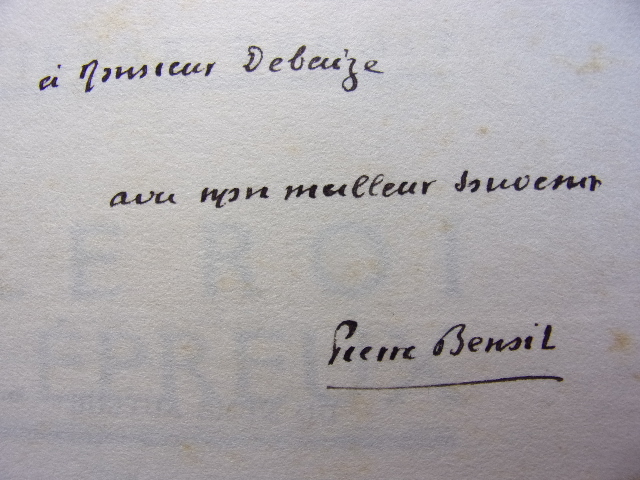 à Monsieur Debaize
avec mon meilleur souvenir
Pierre Bensit